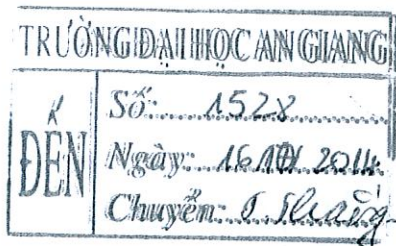 TRƯỜNG ĐẠI HỌC AN GIANG
ĐẾN
Số: 1528
Ngày: 16 2014
Chuyển: